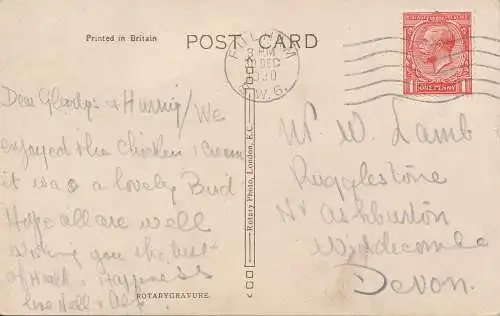 Printed in Britain
POST CARD
FULHAM
8 PM
DEC
1930
S.W.6.
ONE PENNY
Dear Gladys & Harry/We
enjoyed the chicken & cream
it was a lovely Bird
Hope all are well
wishing you the best
of Health & Happiness
love Nell & Alf
ROTARYGRAVURE.
Rotary Photo, London, E.C.
Mr W. Lamb
Rugglestone
Nr Ashburton
Widdecombe
Devon.